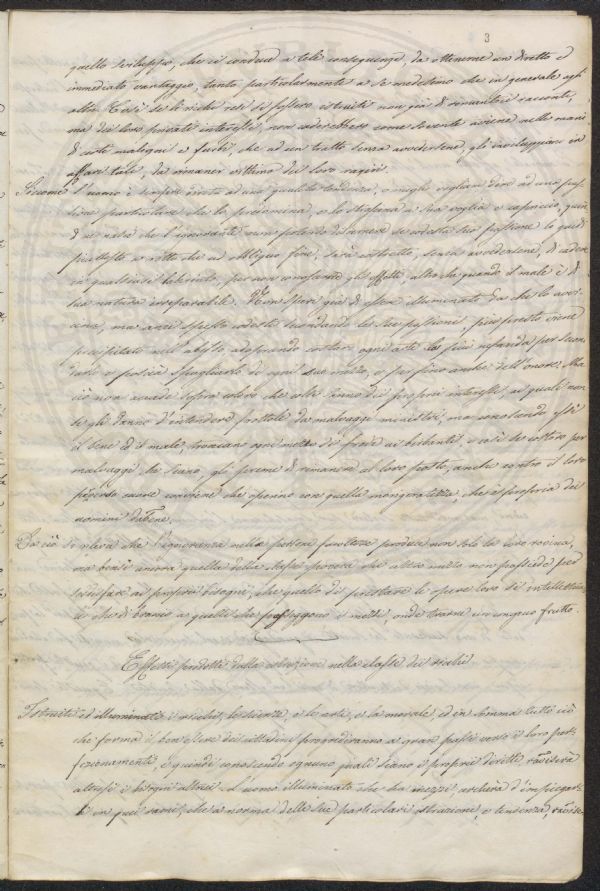 3
quello sviluppo, che ci conduce a tale conseguenza, da ottenerne un diretto ed
immediato vantaggio, tanto particolarmente a se medesimo che in generale agl'
altri. Così se li richi resi si fossero istruiti non già di romantici racconti,
ma dei loro privati interessi, non cederebbero come sovente aviene nelle mani
di certi maligni e furbi, che ad un tratto senza avvedersene, gli inviluppano in
affari tali, da rimaner vittima dei loro ragiri.
Siccome l'uomo è sempre dirito ad una qualche tendenza, o meglio vogliam dire ad una pas-
sione particolare che lo predomina, e lo strascina a sua voglia e capriccio, quin
di ne nasce che l'ignorante non potendo discernere se codesta sua passione lo guidi
piuttosto a retto che ad obliquo fine, sarà costretto, senza avvedersene, di cadere
in qualsiasi laberinto, per non conoscerne gli effetti, altro che quando il male è di
sua natura irreparabile. Non speri già di esser illuminato da chi lo avvi-
cina, ma anzi spesso codesti secondando le sue passioni, più presto viene
precipitato nell'abisso adoprando costoro ogni arte la più rafinata per secon-
darlo e poscia spogliarlo di ogni suo avere, e per fino anche dell'onore. Ma
ciò non accade sopra coloro che colti sono dei propri interessi, ai quali non
se gli danno d'intendere frottole da malvaggi ministri, ma conoscendo essi
il bene ed il male, troncano ogni mezzo di frode ai birbanti, e così se costoro per
malvaggi che siano, gli preme di rimanere al loro posto, anche contro il loro
pravo cuore conviene che oprino con quella morigeratezza, che è propria dei
uomini dabene.
Da ciò si rileva che l'ignoranza nelle persone facoltose produce non solo la loro rovina,
ma bensì ancora quella della classe povera che altro mezzo non possiede per
soddisfare ai propri bisogni, che quello di prestare le opere loro sì intellettua-
li che di braccio a quelli che posseggono i mezzi, onde trarne un congruo frutto.
Effetti prodotti dalla istruzione nella classe dei richi
Istruiti ed illuminati i richi, le scienze, e le arti, e la morale, ed in somma tutto ciò
che forma il ben essere dei cittadini progrediranno a gran passi verso il loro per-
fezionamento e quindi conoscendo ognuno quali siano i propri diritti ravviserà
altresì i bisogni altrui. L'uomo illuminato che ha mezzi cercherà d'impiegar-
li in quei rami, che a norma della sua particolare istruzione, e tendenza, ravvise-